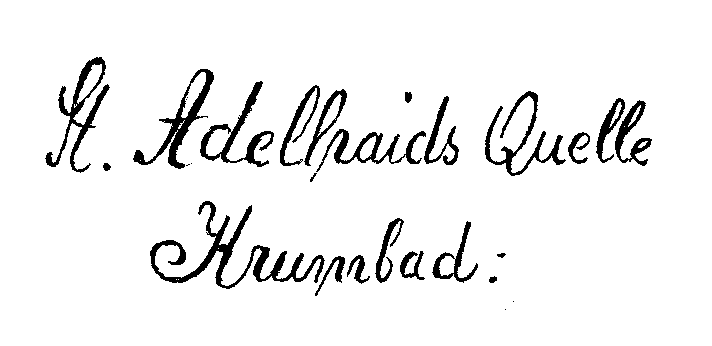 St. Adelhaids Quelle
Krumbad: